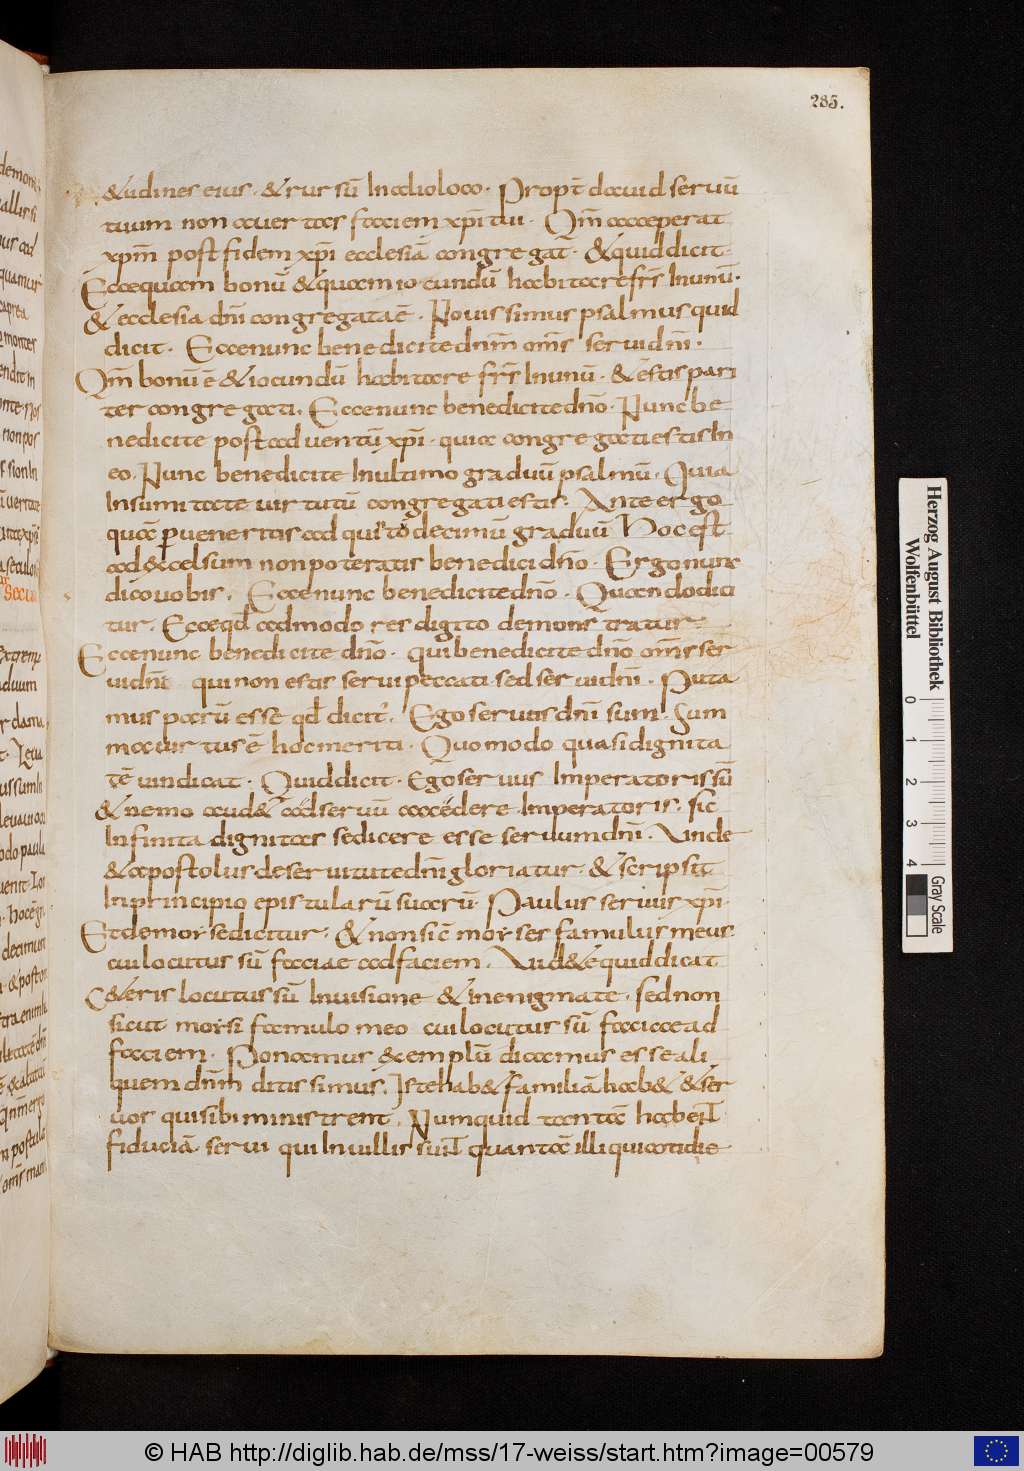 285.
&udines eius · & rursū In alio loco · Propt̄ dauid seruū
tuum non auertas faciem xp̄i tui · Qm̄ acceperat
xpm̄ post fidem xp̄i ecclesiā congregat̄ · & quid dicit
Ecce quam bonū & quam iocundū habitare frs̄ In unū ·
& ecclesia dn̄i congregata ē · Nouissimus psalmus quid
dicit · Ecce nunc benedicite dnm̄ oms̄ serui dn̄i ·
Qm̄ bonū ē & iocundū habitare frs̄ In unū · & estis pari
ter congregati · Ecce nunc benedicite dn̄o · Nunc be
nedicite post aduentū xp̄i · quia congregati estis In
eo · Nunc benedicite In ultimo graduū psalmū · Quia
In summitate uirtutū congregati estis · Ante ergo
quā perueneritis ad quītodecimū graduū Hoc est
ad excelsum non poteratis benedici dn̄o · Ergo nunc
dico uobis · Ecce nunc benedicite dn̄o · Quando dici
tur · Ecce qd̄ ad modo res digito demonstratur ·
Ecce nunc benedicite dn̄o · qui benedicite dn̄o oms̄ ser
ui dn̄i qui non estis serui peccati sed serui dn̄i · Puta
mus parū esse qd̄ dicit · Ego seruus dn̄i sum · Sum
ma uirtus ē hoc meriti · Quomodo quasi dignita
tē uindicat · Quid dicit · Ego seruus Imperatoris sū
& nemo aud& ad seruū accedere Imperatoris · sic
Infinita dignitas se dicere esse seruum dn̄i · Unde
& apostolus de seruitute dn̄i gloriatur · & scripsit
In principio epistularū suarū · Paulus seruus xp̄i ·
Et de mose dicitur · & non sic ē moyses famulus meus
cui locutus sū faciae ad faciem · Uid&e quid dicat
C&eris locutus sū In uisione & in enigmate · sed non
sicut mosi famulo meo cui locutus sū facie ad
faciem · Ponamus exemplū dicamus esse ali
quem dnm̄ ditissimus · Iste hab& familiā hab& & ser
uos qui sibi ministrent · Numquid tantā habent
fiduciā serui qui In uillis sunt quantā illi qui cotidie
Herzog August Bibliothek
Wolfenbüttel
0 1 2 3 4
Gray Scale
© HAB http://diglib.hab.de/mss/17-weiss/start.htm?image=00579